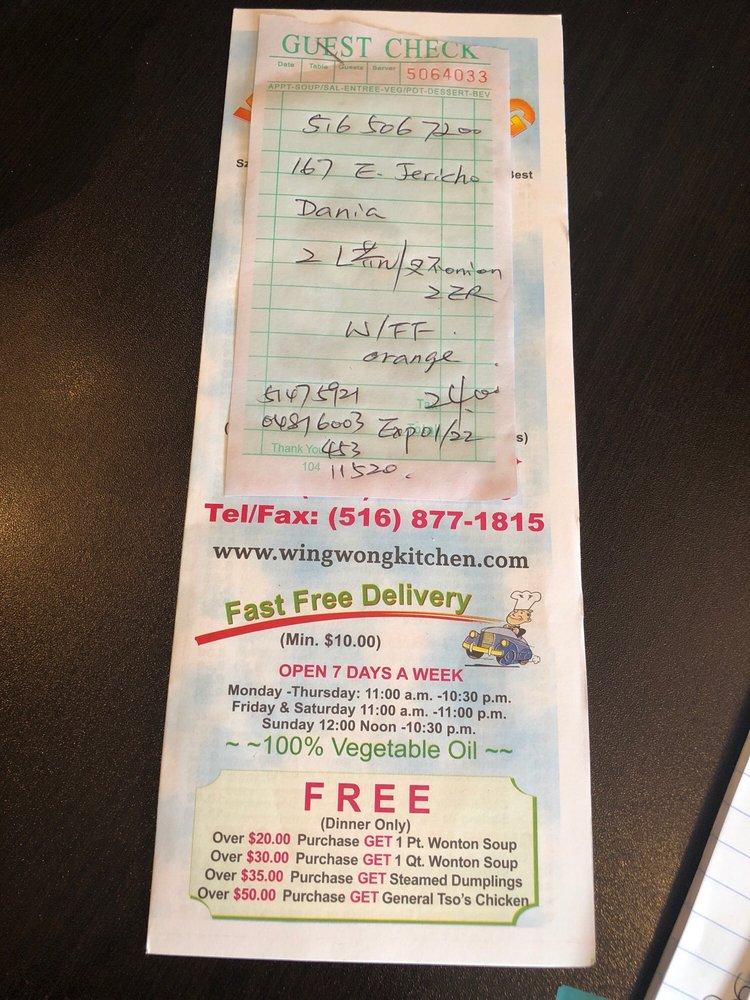 GUEST CHECK
Date Table Guests Server 5064033
APPT-SOUP/SAL-ENTREE-VEG/POT-DESSERT-BEV
516 506 7200
167 E. Jericho
Dania
onion
W/FF
orange
24.00
Thank You
104
Best
Tel/Fax: (516) 877-1815
www.wingwongkitchen.com
Fast Free Delivery
(Min. $10.00)
OPEN 7 DAYS A WEEK
Monday -Thursday: 11:00 a.m. -10:30 p.m.
Friday & Saturday 11:00 a.m. -11:00 p.m.
Sunday 12:00 Noon -10:30 p.m.
~ ~100% Vegetable Oil ~~
FREE
(Dinner Only)
Over $20.00 Purchase GET 1 Pt. Wonton Soup
Over $30.00 Purchase GET 1 Qt. Wonton Soup
Over $35.00 Purchase GET Steamed Dumplings
Over $50.00 Purchase GET General Tso's Chicken